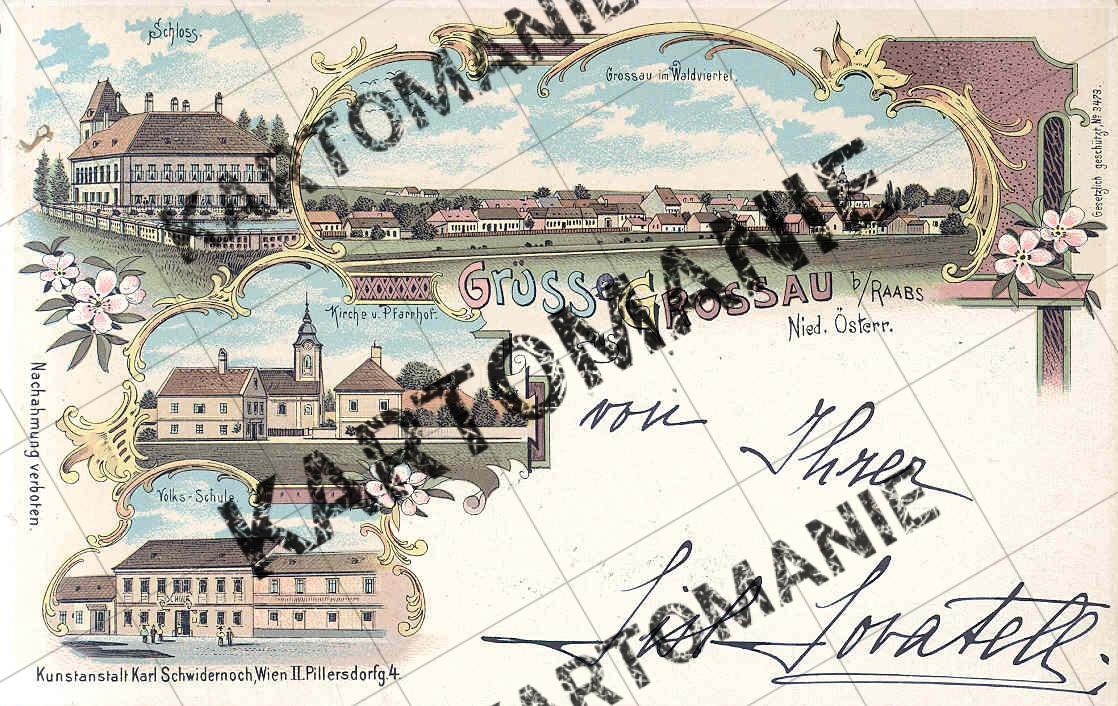 Schloss.
Grossau im Waldviertel.
Gesetzlich geschützt. No 3473.
GRÜSS AUS GROSSAU b/RAABS
Nied. Österr.
Kirche u. Pfarrhof.
Nachahmung verboten.
Volks-Schule
SCHULE
Kunstanstalt Karl Schwidernoch, Wien II. Pillersdorfg. 4.
von Ihrer
KARTOMANIE
KARTOMANIE
KARTOMANIE